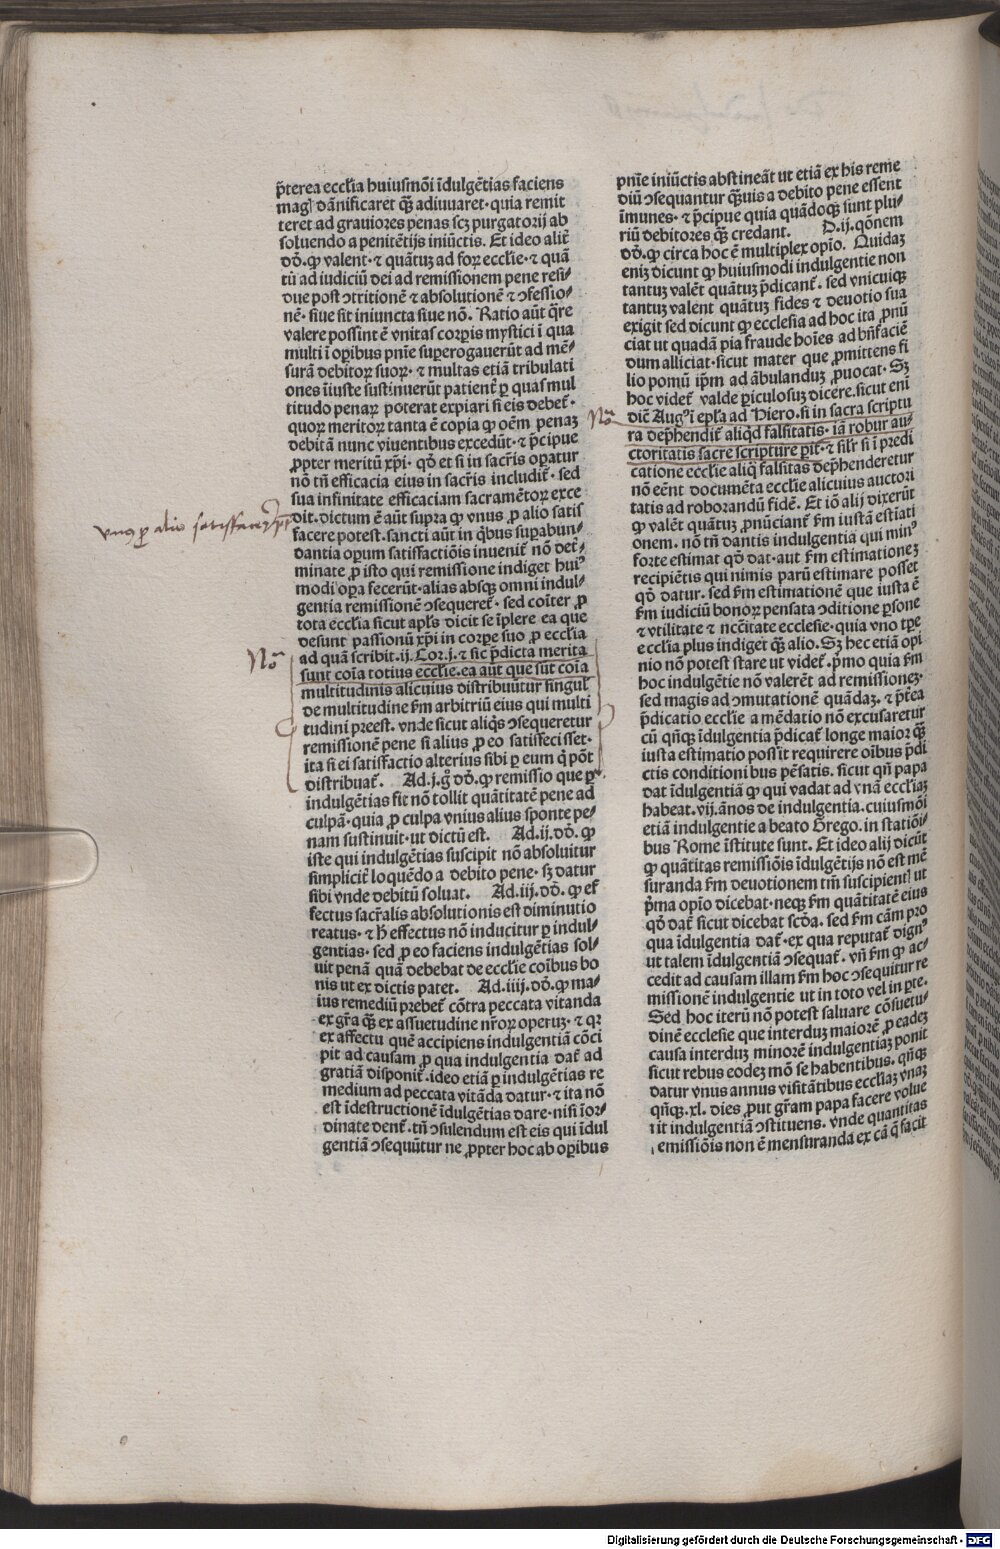 p̄terea eccl̄ia huiusmōi īdulgētias faciens
mag̉ dānificaret q̄ꝫ adiuuaret· quia remit
teret ad grauiores penas scꝫ purgatorij ab
soluendo a penitētijs iniūctis. Et ideo alit̄
dō. ꝙ valent· ⁊ quātuꝫ ad foꝝ eccl̄ie· ⁊ quā
tū ad iudiciū dei ad remissionem pene resi⸗
due post ↄtritionē ⁊ absolutionē ⁊ ↄfessio⸗
nē· siue sit iniuncta siue nō. Ratio aūt q̄re
valere possint ē vnitas corꝑis mystici ī qua
multi ī oꝑibus pnīe suꝑerogauerūt ad mē⸗
surā debitoꝝ suoꝝ· ⁊ multas etiā tribulati
ones iīuste sustinuerūt patient̄ ꝑ quas mul
titudo penaꝝ poterat expiari si eis debet̄·
quoꝝ meritoꝝ tanta ē copia ꝙ oēm penaꝫ
debitā nunc viuentibus excedūt· ⁊ p̄cipue
ꝓpter meritū xp̄i· qd̄ et si in sacr̄is oꝑatur
nō tn̄ efficacia eius in sacr̄is includit̄· sed
sua infinitate efficaciam sacramētoꝝ exce
dit· dictum ē aūt supra ꝙ vnus ꝓ alio satis
facere potest· sancti aūt in q̄bus suꝑabun⸗
dantia oꝑum satisfactiōis inuenit̄ nō det̄⸗
minate ꝓ isto qui remissione indiget huiꝰ
modi oꝑa fecerūt· alias absqꝫ omni indul⸗
gentia remissionē ↄsequeret̄· sed coīter ꝓ
tota eccl̄ia sicut apl̄s dicit se īplere ea que
desunt passionū xp̄i in corꝑe suo ꝓ eccl̄ia
ad quā scribit· ij. Cor. j. ⁊ sic p̄dicta merita
sunt coīa totius eccl̄ie. ea aūt que sūt coīa
multitudinis alicuius distribuūtur singul̄
de multitudine sm̄ arbitriū eius qui multi
tudini preest. vnde sicut aliq̄s ↄsequeretur
remissionē pene si alius ꝓ eo satisfecisset·
ita si ei satisfactio alterius sibi ꝑ eum q̄ pōt
distribuat̄. Ad. j. g̊ dō. ꝙ remissio que ꝑ
indulgētias fit nō tollit quātitatē pene ad
culpā· quia ꝓ culpa vnius alius sponte pe⸗
nam sustinuit· ut dictū est. Ad. ij. dō. ꝙ
iste qui indulgētias suscipit nō absoluitur
simplicit̄ loquēdo a debito pene· sꝫ datur
sibi vnde debitū soluat. Ad. iij. dō. ꝙ ef
fectus sacr̄alis absolutionis est diminutio
reatus· ⁊ h̄ effectus nō inducitur ꝑ indul⸗
gentias· sed ꝓ eo faciens indulgētias sol⸗
uit penā quā debebat de eccl̄ie coībus bo
nis ut ex dictis patet. Ad. iiij. dō. ꝙ ma⸗
ius remediū prebet̄ cōtra peccata vitanda
ex gr̄a q̄ꝫ ex assuetudine nr̄oꝝ operuꝫ· ⁊ qꝛ
ex affectu quē accipiens indulgentiā cōci
pit ad causam ꝓ qua indulgentia dat̄ ad
gratiā disponit̄· ideo etiā ꝑ indulgentias re
medium ad peccata vitāda datur· ⁊ ita nō
est īdestructionē īdulgētias dare· nisi īor⸗
dinate dent̄. tn̄ ↄsulendum est eis qui īdul
gentiā ↄsequūtur ne ꝓpter hoc ab oꝑibus
pnīe iniūctis abstineāt ut etiā ex his reme
diū ↄsequantur q̄uis a debito pene essent
īmunes· ⁊ p̄cipue quia quādoqꝫ sunt plu⸗
riū debitores q̄ꝫ credant. D. ij. qōnem
dō. ꝙ circa hoc ē multiplex opīo. Quidaꝫ
eniꝫ dicunt ꝙ huiusmodi indulgentie non
tantuꝫ valēt quātuꝫ p̄dicant̄. sed vnicuiqꝫ
tantuꝫ valent quātuꝫ fides ⁊ deuotio sua
exigit sed dicunt ꝙ ecclesia ad hoc ita ꝓnū
ciat ut quadā pia fraude hoīes ad bn̄faciē
dum alliciat· sicut mater que ꝓmittens fi
lio pomū ip̄m ad ābulanduꝫ ꝓuocat· Sꝫ
hoc videt̄ valde ꝑiculosuꝫ dicere. sicut enī
dic̄ Augꝰ ī epl̄a ad Hiero. si in sacra scriptu
ra dep̄hendit̄ aliq̄d falsitatis· iā robur au⸗
ctoritatis sacre scripture ꝑit· ⁊ sil̄r si ī predi
catione eccl̄ie aliq̄ falsitas dep̄henderetur
nō eēnt documēta eccl̄ie alicuius auctori
tatis ad roborandū fidē. Et iō alij dixerūt
ꝙ valēt quātuꝫ ꝓnūciant̄ sm̄ iustā estiati
onem. nō tn̄ dantis indulgentia qui minꝰ
forte estimat qd̄ dat· aut sm̄ estimationeꝫ
recipiētis qui nimis parū estimare posset
qd̄ datur. sed sm̄ estimationē que iusta ē
sm̄ iudiciū bonoꝝ pensata ↄditione ꝑsone
⁊ vtilitate ⁊ nc̄citate ecclesie· quia vno tꝑe
eccl̄ia plus indiget q̄ꝫ alio. Sꝫ hec etiā opi
nio nō potest stare ut videt̄. p̄mo quia sm̄
hoc indulgētie nō valerēt ad remissioneꝫ·
sed magis ad ↄmutationē quādaꝫ. ⁊ p̄tea
p̄dicatio eccl̄ie a mēdatio nō excusaretur
cū qn̄qꝫ īdulgentia p̄dicat̄ longe maior q̄ꝫ
iusta estimatio possit requirere oībus p̄di
ctis conditionibus pēsatis. sicut qn̄ papa
dat īdulgentiā ꝙ qui vadat ad vnā eccl̄iaꝫ
habeat. vij. ānos de indulgentia. cuiusmōi
etiā indulgentie a beato Grego. in statiōi⸗
bus Rome īstitute sunt. Et ideo alij dicūt
ꝙ quātitas remissiōis īdulgētijs nō est mē
suranda sm̄ deuotionem tm̄ suscipientꝭ ut
p̄ma opīo dicebat· neqꝫ sm̄ quātitatē eius
qd̄ dat̄ sicut dicebat scd̄a. sed sm̄ cām pro
qua īdulgentia dat̄· ex qua reputat̄ dignꝰ
ut talem īdulgentiā ↄsequat̄. vn̄ sm̄ ꝙ ac⸗
cedit ad causam illam sm̄ hoc ↄsequitur re
missionē indulgentie ut in toto vel in ꝑte.
Sed hoc iterū nō potest saluare cōsuetu⸗
dinē ecclesie que interduꝫ maiorē ꝓ eadeꝫ
causa interduꝫ minorē indulgentiaꝫ ponit
sicut rebus eodeꝫ mō se habentibus. qn̄qꝫ
datur vnus annus visitātibus eccl̄iaꝫ vnaꝫ
qn̄qꝫ. xl. dies ꝓut gr̄am papa facere volue
rit indulgentiā ↄstituens. vnde quantitas
remissiōis non ē mensuranda ex cā q̄ facit
vnus ꝑ alio
No
No
Digitalisierung gefördert durch die Deutsche Forschungsgemeinschaft · DFG